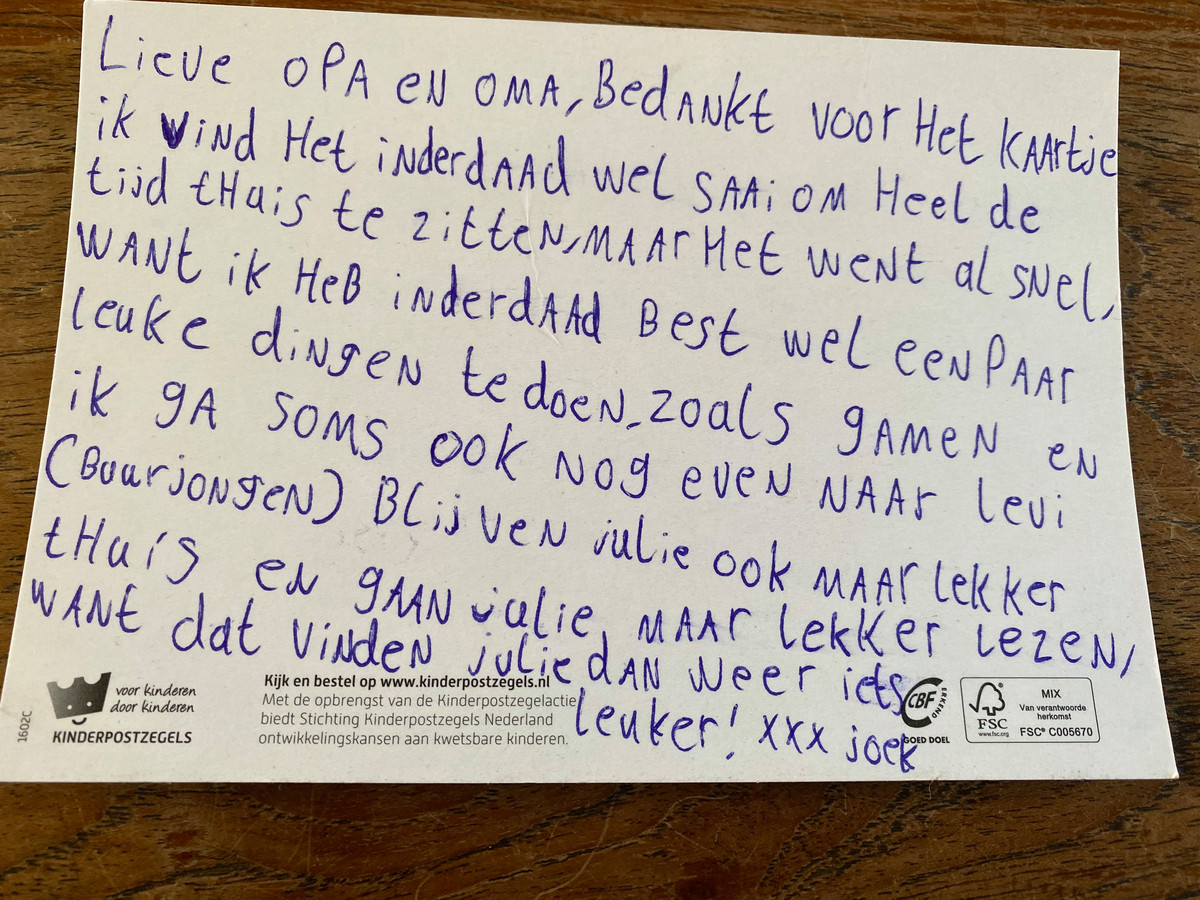 Lieve opa en oma, Bedankt voor Het kaartje
ik vind Het inderdaad wel saai om Heel de
tijd tHuis te zitten, maar Het went al snel,
want ik HeB inderdaad Best wel een paar
leuke dingen te doen, zoals gamen en
ik ga soms ook nog even naar levi
(Buurjongen) Blijven julie ook maar lekker
tHuis en gaan julie maar lekker lezen,
want dat vinden julie dan weer iets
leuker! xxx joek
1602C
voor kinderen
door kinderen
KINDERPOSTZEGELS
Kijk en bestel op www.kinderpostzegels.nl
Met de opbrengst van de Kinderpostzegelactie
biedt Stichting Kinderpostzegels Nederland
ontwikkelingskansen aan kwetsbare kinderen.
CBF
ERKEND
GOED DOEL
FSC
www.fsc.org
MIX
Van verantwoorde
herkomst
FSC® C005670